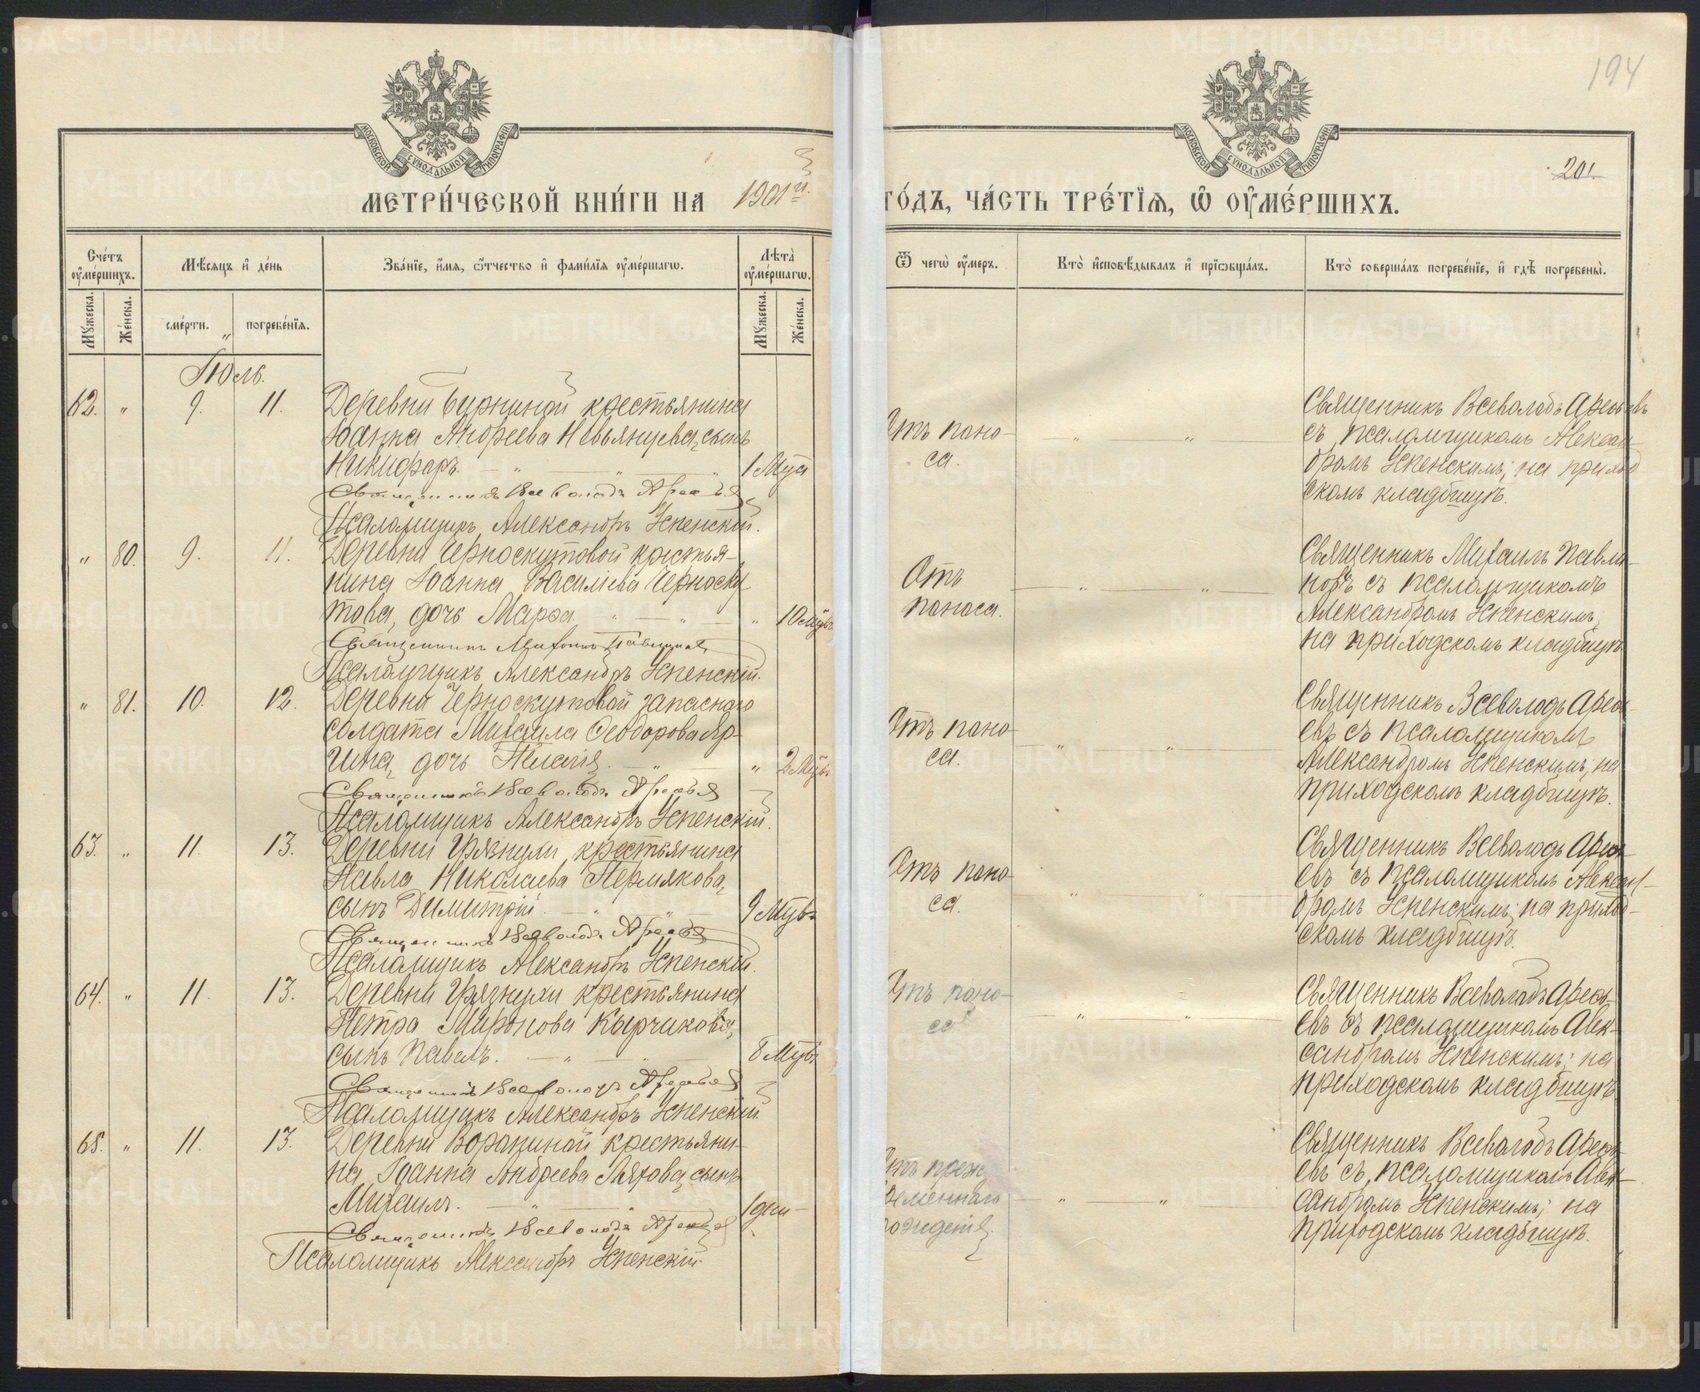 METRIKI.GASO-URAL.RU
194
МОСКОВСКОЙ СѴНОДАЛЬНОЙ ТИПОГРАФІИ
МОСКОВСКОЙ СѴНОДАЛЬНОЙ ТИПОГРАФІИ
201.
МЕТРИ́ЧЕСКОЙ КНИ́ГИ НА 1901й. ГО́ДЪ, ЧА́СТЬ ТРЕ́ТІѦ, Ѡ҆ ОУ҆МЕ́РШИХЪ.
Сче́тъ оу҆ме́ршихъ.
Мѣ́сѧцъ и҆ де́нь
Зва́нїе, и҆́мѧ, ѻ҆́тчество и҆ фами́лїѧ оу҆ме́ршагѡ.
Лѣта̀ оу҆ме́ршагѡ.
Ѿ чегѡ̀ оу҆́меръ.
Кто̀ и҆сповѣ́дывалъ и҆ прїѡбща́лъ.
Кто̀ соверша́лъ погребе́нїе, и҆ гдѣ̀ погребены̀.
Мꙋ́жеска.
Же́нска.
сме́рти.
погребе́нїѧ.
Мꙋ́жеска.
Же́нска.
Іюль.
62. " 9. 11. Деревни Бурниной крестьянина
Іоанна Андреева Невьянцева, сынъ
Никифоръ. 1 Мца
Священникъ Всеволодъ Арефьевъ
Псаломщикъ Александръ Успенскій.
Отъ поно-
са.
Священникъ Всеволодъ Арефьевъ
съ псаломщикомъ Алексан-
дромъ Успенскимъ; на приход-
скомъ кладбищѣ.
" 80. 9. 11. Деревни Черноскутовой крестья-
нина Іоанна Васильева Черноску-
това, дочь Марѳа " 10 мцѣв
Священникъ Михаилъ Павлиновъ
Псаломщикъ Александръ Успенскій.
Отъ
поноса.
Священникъ Михаилъ Павли-
новъ съ псаломщикомъ
Александромъ Успенскимъ,
на приходскомъ кладбищѣ
" 81. 10. 12. Деревни Черноскутовой запаснаго
солдата Михаила Ѳеодорова Яр-
цина, дочь Пелагія. " 2 Мцѣв
Священникъ Всеволодъ Арефьевъ
Псаломщикъ Александръ Успенскій.
Отъ поно-
са.
Священникъ Всеволодъ Арефь-
евъ съ псаломщикомъ
Александромъ Успенскимъ, на
приходскомъ кладбищѣ.
63. " 11. 13. Деревни Грязнухи крестьянина
Павла Николаева Пермякова,
сынъ Димитрій. 9 Мцѣв
Священникъ Всеволодъ Арефьевъ
Псаломщикъ Александръ Успенскій.
Отъ поно-
са.
Священникъ Всеволодъ Арефь-
евъ съ псаломщикомъ Алексан-
дромъ Успенскимъ; на приход-
скомъ кладбищѣ.
64. " 11. 13. Деревни Грязнухи крестьянина
Петра Миронова Кырчикова,
сынъ Павелъ. 8 Мцѣв
Священникъ Всеволодъ Арефьевъ
Псаломщикъ Александръ Успенскій
Отъ поно-
са
Священникъ Всеволодъ Арефь-
евъ съ псаломщикомъ Алек-
сандромъ Успенскимъ; на
приходскомъ кладбищѣ.
65. " 11. 13. Деревни Воропиной крестьяни-
на Іоанна Андреева Ляхова, сынъ
Михаилъ. 1 дни
Священникъ Всеволодъ Арефьевъ
Псаломщикъ Александръ Успенскій
Отъ преж-
девременнаго
рожденія
Священникъ Всеволодъ Арефь-
евъ съ псаломщикомъ Алек-
сандромъ Успенскимъ; на
приходскомъ кладбищѣ.